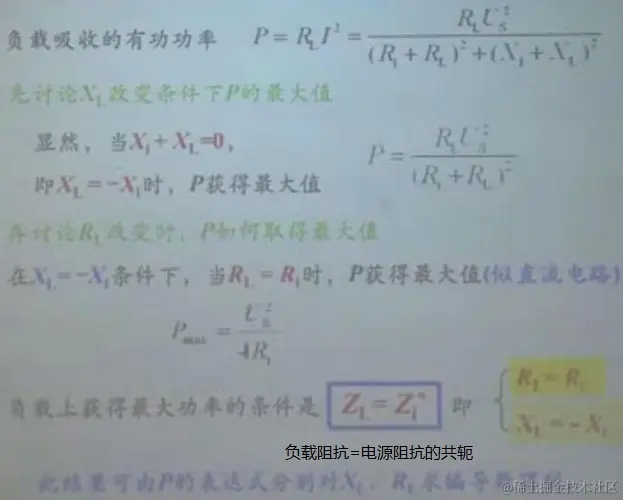 负载吸收的有功功率 P = R_L I² = R_L U_S² / ((R_i + R_L)² + (X_i + X_L)²)
先讨论X_L改变条件下P的最大值
显然，当X_i + X_L =0，
即X_L = -X_i时，P获得最大值 P = R_L U_S² / (R_i + R_L)²
再讨论R_L改变时，P如何取得最大值
在X_L = -X_i条件下，当R_L = R_i时，P获得最大值(似直流电路)
P_max = U_S² / 4R_i
负载上获得最大功率的条件是 Z_L = Z_i* 即 { R_L = R_i
X_L = - X_i
负载阻抗=电源阻抗的共轭
此结果可由P的表达式分别对X_L、R_L求偏导数得到
@稀土掘金技术社区